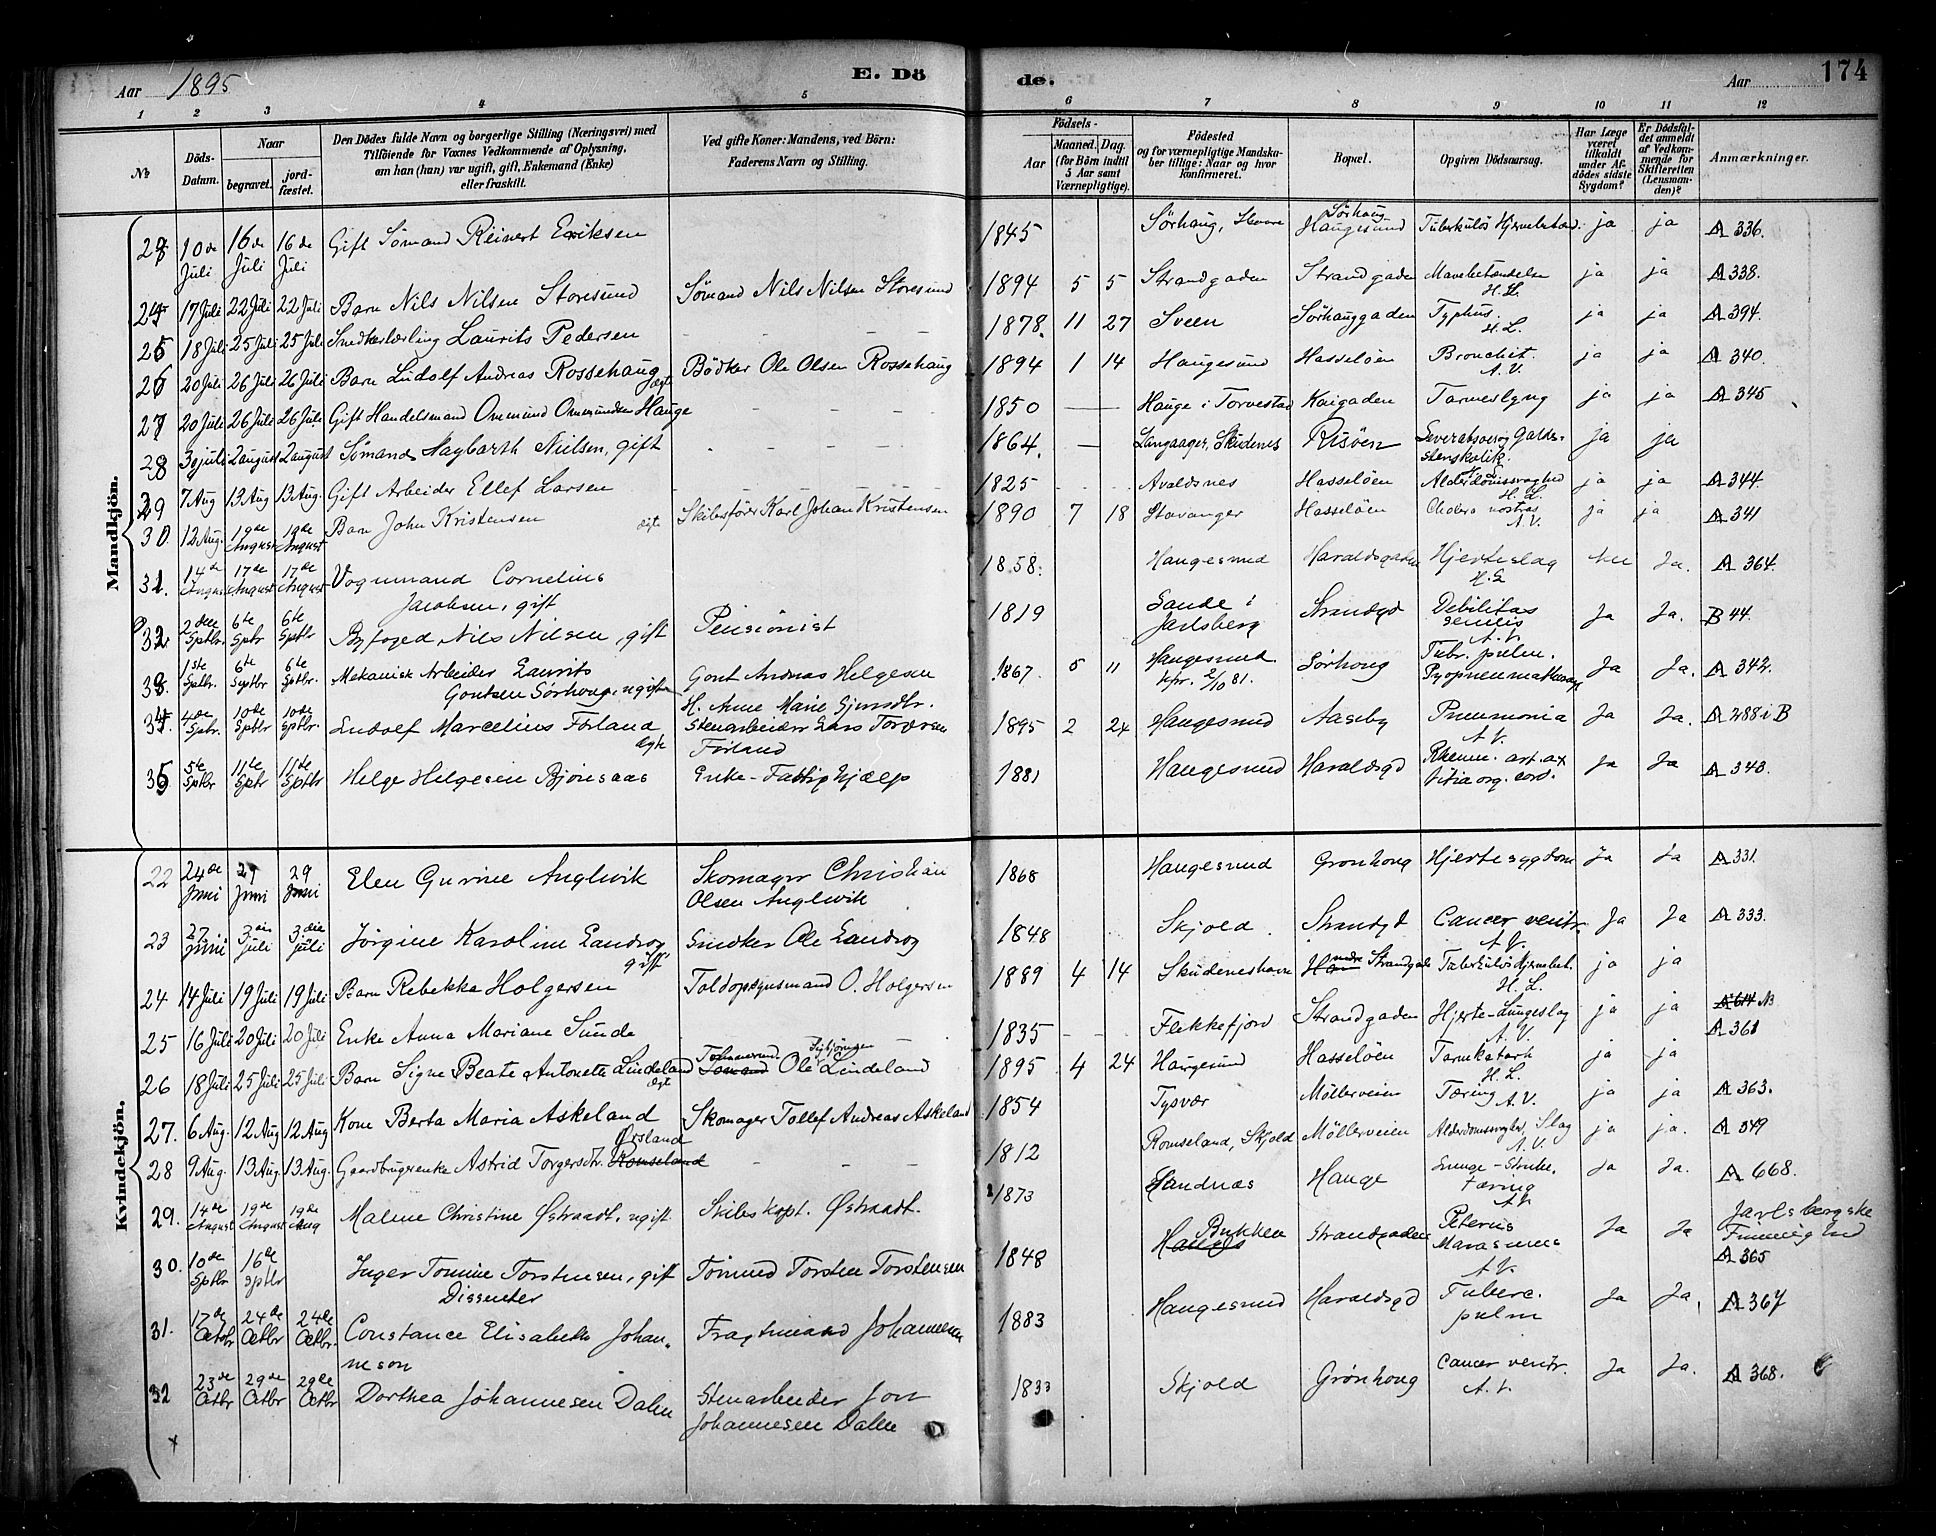 Aar 1895
E. Dö
de.
Aar
174
1 2 3 4 5 6 7 8 9 10 11 12
No
Döds-Datum.
Naar
begravet.
jordfæstet.
Den Dödes fulde Navn og borgerlige Stilling (Næringsvei) med
Tilföiende for Voxnes Vedkommende af Oplysning,
om han (hun) var ugift, gift, Enkemand (Enke)
eller fraskilt.
Ved gifte Koner: Mandens, ved Börn:
Faderens Navn og Stilling.
Födsels-
Aar
Maaned. Dag.
(for Börn indtil
5 Aar samt
Værnepligtige).
Födested
og for værnepligtige Mandska-
ber tillige: Naar og hvor
konfirmeret.
Bopæl.
Opgiven Dödsaarsag.
Har Læge
været
tilkaldt
under Af-
dödes sidste
Sygdom?
Er Dödsfal-
det anmeldt
af Vedkom-
mende for
Skifteretten
(Lensman-
den)?
Anmærkninger.
Mandkjön.
23 10de Juli 16de Juli 16de Juli Gift Sömand Reinert Eriksen 1845 Sörhaug, Sörhaug Haugesund Tuberkulös ja ja A 336.
24 17 Juli 22 Juli 22 Juli Barn Nils Nilsen Storesund Sömand Nils Nilsen Storesund 1894 5 5 Strandgaden Strandgaden Mavebetændelse H. L. ja ja A 338.
25 18 Juli 25 Juli 25 Juli Snedkerlærling Laurits Pedersen - - - - 1878. 11 27 Sveen Sörhauggaden Typhus. H. L. ja ja A 394.
26 20 Juli 26 Juli 26 Juli Barn Ludolf Andreas Rossehaug ægte Bödker Ole Olsen Rossehaug 1894 1 14 Haugesund Hasselöen Bronchit. A. V. ja ja A 340.
27 20 Juli 26 Juli 26 Juli Gift Handelsmand Ommund Ommundsen Hauge - - - - 1850 Hauge i Torvestad Kaigaden Tarmeslyng ja ja A 345
28 30 juli 2 august 2 august Sømand Hagbarth Nielsen, gift - - - - 1864. Langaager, Skudenes Risöen Galde-stenskolik. ja ja
29 7 Aug 13 Aug 13 Aug. Gift Arbeider Ellef Larsen - - - - 1825 Avaldsnes Hasselöen Alderdomssvaghed H. L. ja ja A 344.
30. 12 Aug. 19de August 19de August Barn John Kristensen ægte Skibsförer Karl Johan Kristensen 1890 7 18 Stavanger Hasselöen Cholera nostras A. V. ja ja A 341
31. 14de August 17de August 17de August Vognmand Cornelius
Jacobsen, gift 1858. Haugesund Haraldsgaden Hjerteslag Ja. A 364.
32. 2den Sptbr. 6te Sptbr 6te Sptbr Byfoged Nils Nilsen, gift Pensionist 1819 Sande i Jarlsberg Strandgd Debilitas senilis A. V. Ja Ja. B 44.
33. 1ste Sptbr. 6te Septbr 6te Sptbr. Mekanisk Arbeider Laurits
Gontsen Sørhoug, ugift Gont Andreas Helgesen
H. Anne Marie 1867 5 11 Haugesund. Kfr. 2/10 81. Sørhoug Tub. pulm. Ja Ja. A 342.
34. 4de Sptbr. 10de Sptbr 10de Sptbr. Ludolf Marcelius Førland ægte Stenarbeider Lars Førland 1895 2 24 Haugesund Aasbø Pneumonia A. V. Ja Ja. A 288 i B
35 5te Sptbr 11te Sptbr 11te Sptbr Helge Helgesen Bjönsaas Enke - Fattighjælp 1881 Haugesund Haraldsgd Rheum. art. vitia org. cord. Ja Ja A 343.
Kvindekjön.
22 24de Juni 29 Juni 29 Juni Elen Gurine Anglevik Skomager Christian
Olsen Anglevik 1868 Haugesund Grønhoug Hjertesygdom Ja Ja A 331.
23 27 juni 3die juli 3die juli Jörgine Karoline Landrog, gift Snedker Ole Landrog 1848 Skjold. Strandgd Cancer ventr. A. V. Ja Ja A 333.
24 14 Juli 19 Juli 19 Juli Barn Rebekka Holgersen Toldopsynsmand O. Holgersen 1889 4 14 Skudeneshavn Strandgade Tuberkulös Hjernebet. H. L. ja ja
25 16 Juli 20 Juli 20 Juli Enke Anna Mariane Sunde 1835 - - Flekkefjord Strandgaden Hjerte-Lungeslag A. V. ja ja A 614 A 361
26 18 Juli 25 Juli 25 Juli Barn Signe Beate Antonette Lindeland ægt Ole Lindeland 1895 4 24 Haugesund Hasselöen Tarmkatarh H. L. ja ja
27. 6 Aug. 12 Aug 12 Aug Kone Berta Maria Askeland Skomager Tollef Andreas Askeland 1854 Tysvær Möllerveien Tæring A. V. ja ja A 363.
28 9 Aug. 13 Aug. 13 Aug. Gaardbrugerenke Astrid Torgersdtr. Ørsland Romseland - - - 1812 Romseland, Skjold Möllerveien Alderdomssvaghed, Slag A. V. ja ja. A 349
29. 14de August 19de August 19de Aug Malene Christine Østraadt, ugift Skibskapt. Østraadt. 1873 Sandnæs Hauge Lunge-Strube-tæring A. V. Ja Ja. A 668.
30. 10de Sptbr 16de Sptbr Inger Tomine Torstensen, gift
Dissenter Tömmd Torsten Torstensen 1848 Bukken Strandgaden Marasmus A. V. Ja Ja Jarlsbergske A 365
31. 17de Octobr 24de Octbr 24de Octbr. Constance Elisabeth Johan-
neson Fragtmand Johannesen 1883 Haugesund Haraldsgd Tuberc. pulm Ja Ja. A 367
32 23de Octbr 29de Octbr 29de Octbr Dorthea Johannesen Dalen Stenarbeider Jon
Johannesen Dalen 1833 Skjold Grønhoug Cancer ventr. A. V. Ja Ja. A 368.